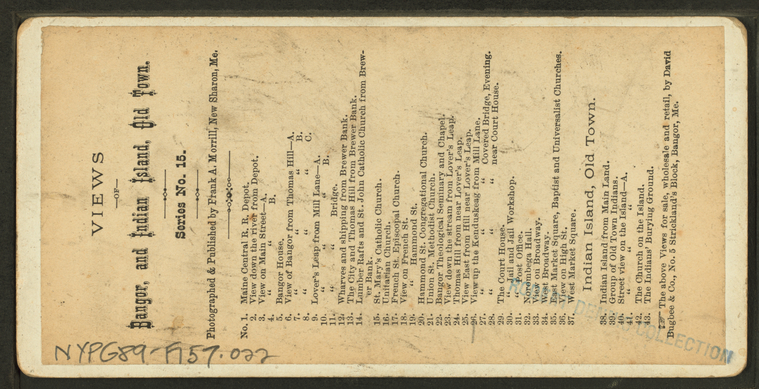 VIEWS
—OF—
Bangor, and Indian Island, Old Town.
Series No. 15.
Photographed & Published by Frank A. Morrill, New Sharon, Me.
No. 1. Maine Central R. R. Depot.
2. View down the river from Depot.
3. View on Main Street—A.
4. " " " B.
5. Bangor House.
6. View of Bangor from Thomas Hill—A.
7. " " " " B.
8. " " " " C.
9. Lover's Leap from Mill Lane—A.
10. " " " " B.
11. " " " Bridge.
12. Wharves and shipping from Brewer Bank.
13. The City and Thomas Hill from Brewer Bank.
14. Lumber Rafts and St. John Catholic Church from Brew-
er Bank.
15. St. Mary's Catholic Church.
16. Unitarian Church.
17. French St. Episcopal Church.
18. View on French St.
19. " " Hammond St.
20. Hammond St. Congregational Church.
21. Union St. Methodist Church.
22. Bangor Theological Seminary and Chapel.
23. View down the stream from Lover's Leap.
24. Thomas Hill from near Lover's Leap.
25. View East from Hill near Lover's Leap.
26. View up the Kenduskeag from Mill Lane.
27. " " " " Covered Bridge, Evening.
28. " " " " near Court House.
29. The Court House.
30. " Jail and Jail Workshop.
31. " Post Office.
32. Norombega Hall.
33. View on Broadway.
34. West Broadway.
35. East Market Square, Baptist and Universalist Churches.
36. View on High St.
37. West Market Square.
Indian Island, Old Town.
38. Indian Island from Main Land.
39. Group of Old Town Indians.
40. Street view on the Island—A.
41. " " " " "
42. The Church on the Island.
43. The Indians' Burying Ground.
The above Views for sale, wholesale and retail, by David
Bugbee & Co., No. 5 Strickland's Block, Bangor, Me.
COLLECTION
NYPG89-F157.022